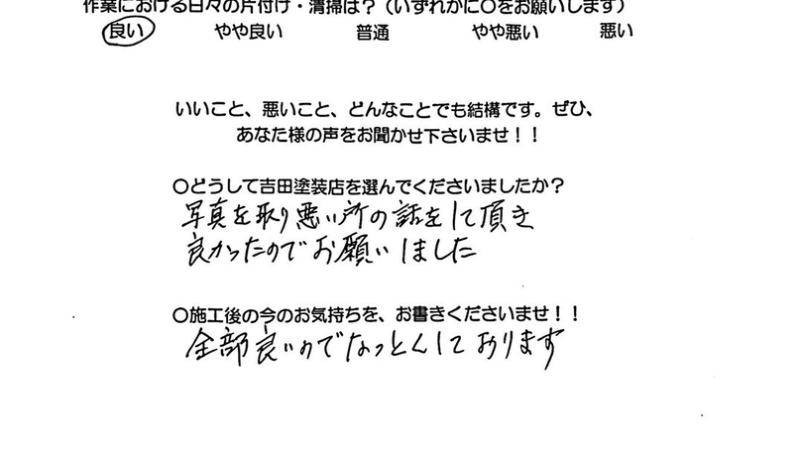 作業における日々の片付け・清掃は？（いずれかに〇をお願いします）
良い　やや良い　普通　やや悪い　悪い
いいこと、悪いこと、どんなことでも結構です。ぜひ、
あなた様の声をお聞かせ下さいませ！！
〇どうして吉田塗装店を選んでくださいましたか？
写真を取り悪い所の話をして頂き
良かったのでお願いしました
〇施工後の今のお気持ちを、お書きくださいませ！！
全部良いのでなっとくしております